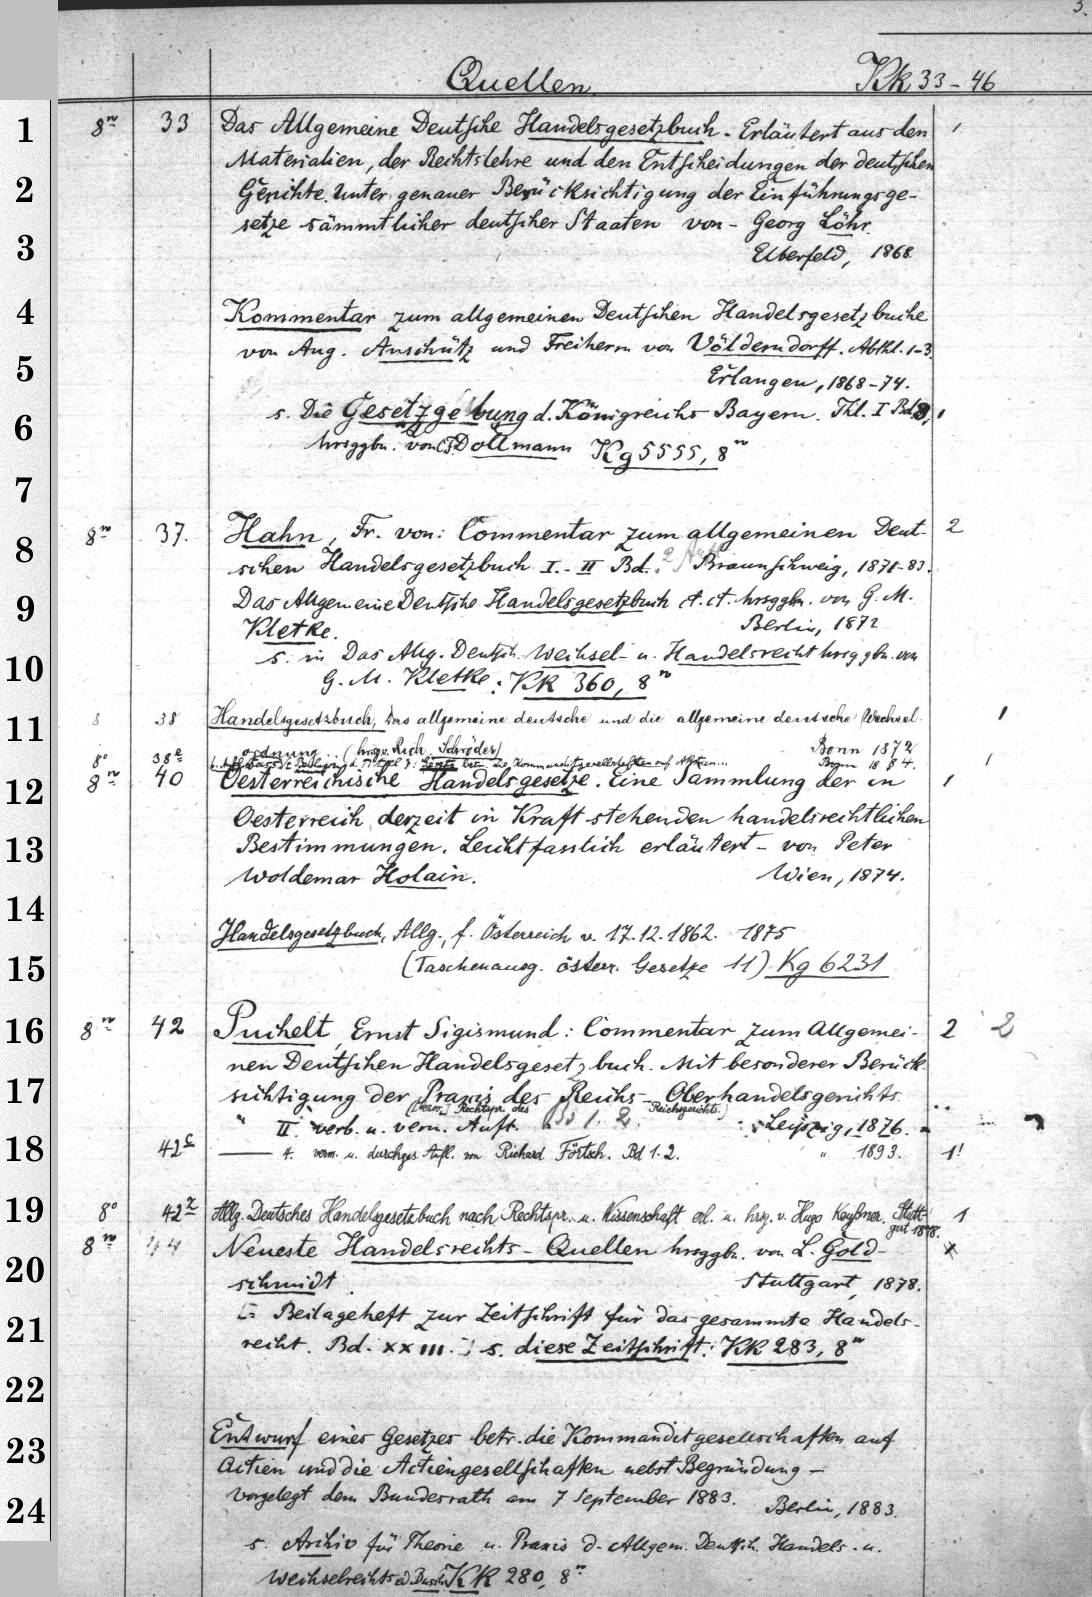 3.
Quellen Kk 33-46
1
8º 33 Das Allgemeine Deutsche Handelsgesetzbuch. Erläutert aus den 1
Materialien, der Rechtslehre und den Entscheidungen der deutschen
2
Gerichte. Unter genauer Berücksichtigung der Einführungsge-
setze sämmtlicher deutscher Staaten von - Georg Löhr.
3
Elberfeld, 1868.
4
Kommentar zum allgemeinen Deutschen Handelsgesetzbuche
von Aug. Anschütz und Freiherrn von Völderndorff. Abthl. 1-3.
5
Erlangen, 1868-74.
s. Die Gesetzgebung d. Königreichs Bayern. Thl. I Bd. 8,
6
hrsggbn. von Dollmann Kg 5555, 8º
7
8º 37. Hahn, Fr. von: Commentar zum allgemeinen Deut- 2
8
schen Handelsgesetzbuch I.-II Bd. 2 Aufl. Braunschweig, 1871-83.
9
Das Allgemeine Deutsche Handelsgesetzbuch et. ct. hrsggbn. von G. M.
Kletke. Berlin, 1872
10
s. in Das Allg. Deutsch. Wechsel- u. Handelsrecht hrsggbn. von
G. M. Kletke: KK 360, 8º
11
8 38 Handelsgesetzbuch, Das allgemeine deutsche und die allgemeine deutsche Wechsel- 1
ordnung .. (hrsg. v. Rich. Schröder) Bonn 1872
8º 38ª betr. die Kommanditgesellschaften auf Aktien... Bonn 1884. 1
12
8º 40 Oesterreichische Handelsgesetze. Eine Sammlung der in 1
Oesterreich derzeit in Kraft stehenden handelsrechtlichen
13
Bestimmungen. Leicht fasslich erläutert - von Peter
Woldemar Holain. Wien, 1874.
14
Handelsgesetzbuch, Allg., f. Österreich v. 17.12.1862. 1875
15
(Taschenausg. österr. Gesetze 11) Kg 6231
16
8º 42 Puchelt, Ernst Sigismund: Commentar zum Allgemei- 2 2
nen Deutschen Handelsgesetzbuch. Mit besonderer Berück-
17
sichtigung der Praxis des Reichs-Oberhandelsgerichts.
Rechtspr. des Reichsgerichts)
" II. verb. u. verm. Aufl. Bd 1. 2. Leipzig, 1876.
18
42c —— 4. verm. u. durchges. Aufl. von Richard Förtsch. Bd 1. 2. " 1893. 1!
19
8º 42z Allg. Deutsches Handelsgesetzbuch nach Rechtspr. u. Wissenschaft erl. u. hrsg. v. Hugo Keyßner. Stutt- 1
gart 1878.
8º 44 Neueste Handelsrechts-Quellen hrsggbn. von L. Gold-
20
schmidt. Stuttgart, 1878.
[= Beilageheft zur Zeitschrift für das gesammte Handels-
21
recht. Bd. XXIII.] s. diese Zeitschrift: KK 283, 8º
22
Entwurf eines Gesetzes betr. die Kommanditgesellschaften auf
23
Actien und die Actiengesellschaften nebst Begründung -
Vorgelegt dem Bundesrath am 7 September 1883. Berlin, 1883.
24
s. Archiv für Theorie u. Praxis d. Allgem. Deutsch. Handels- u.
Wechselrechts ed Busch KK 280, 8º